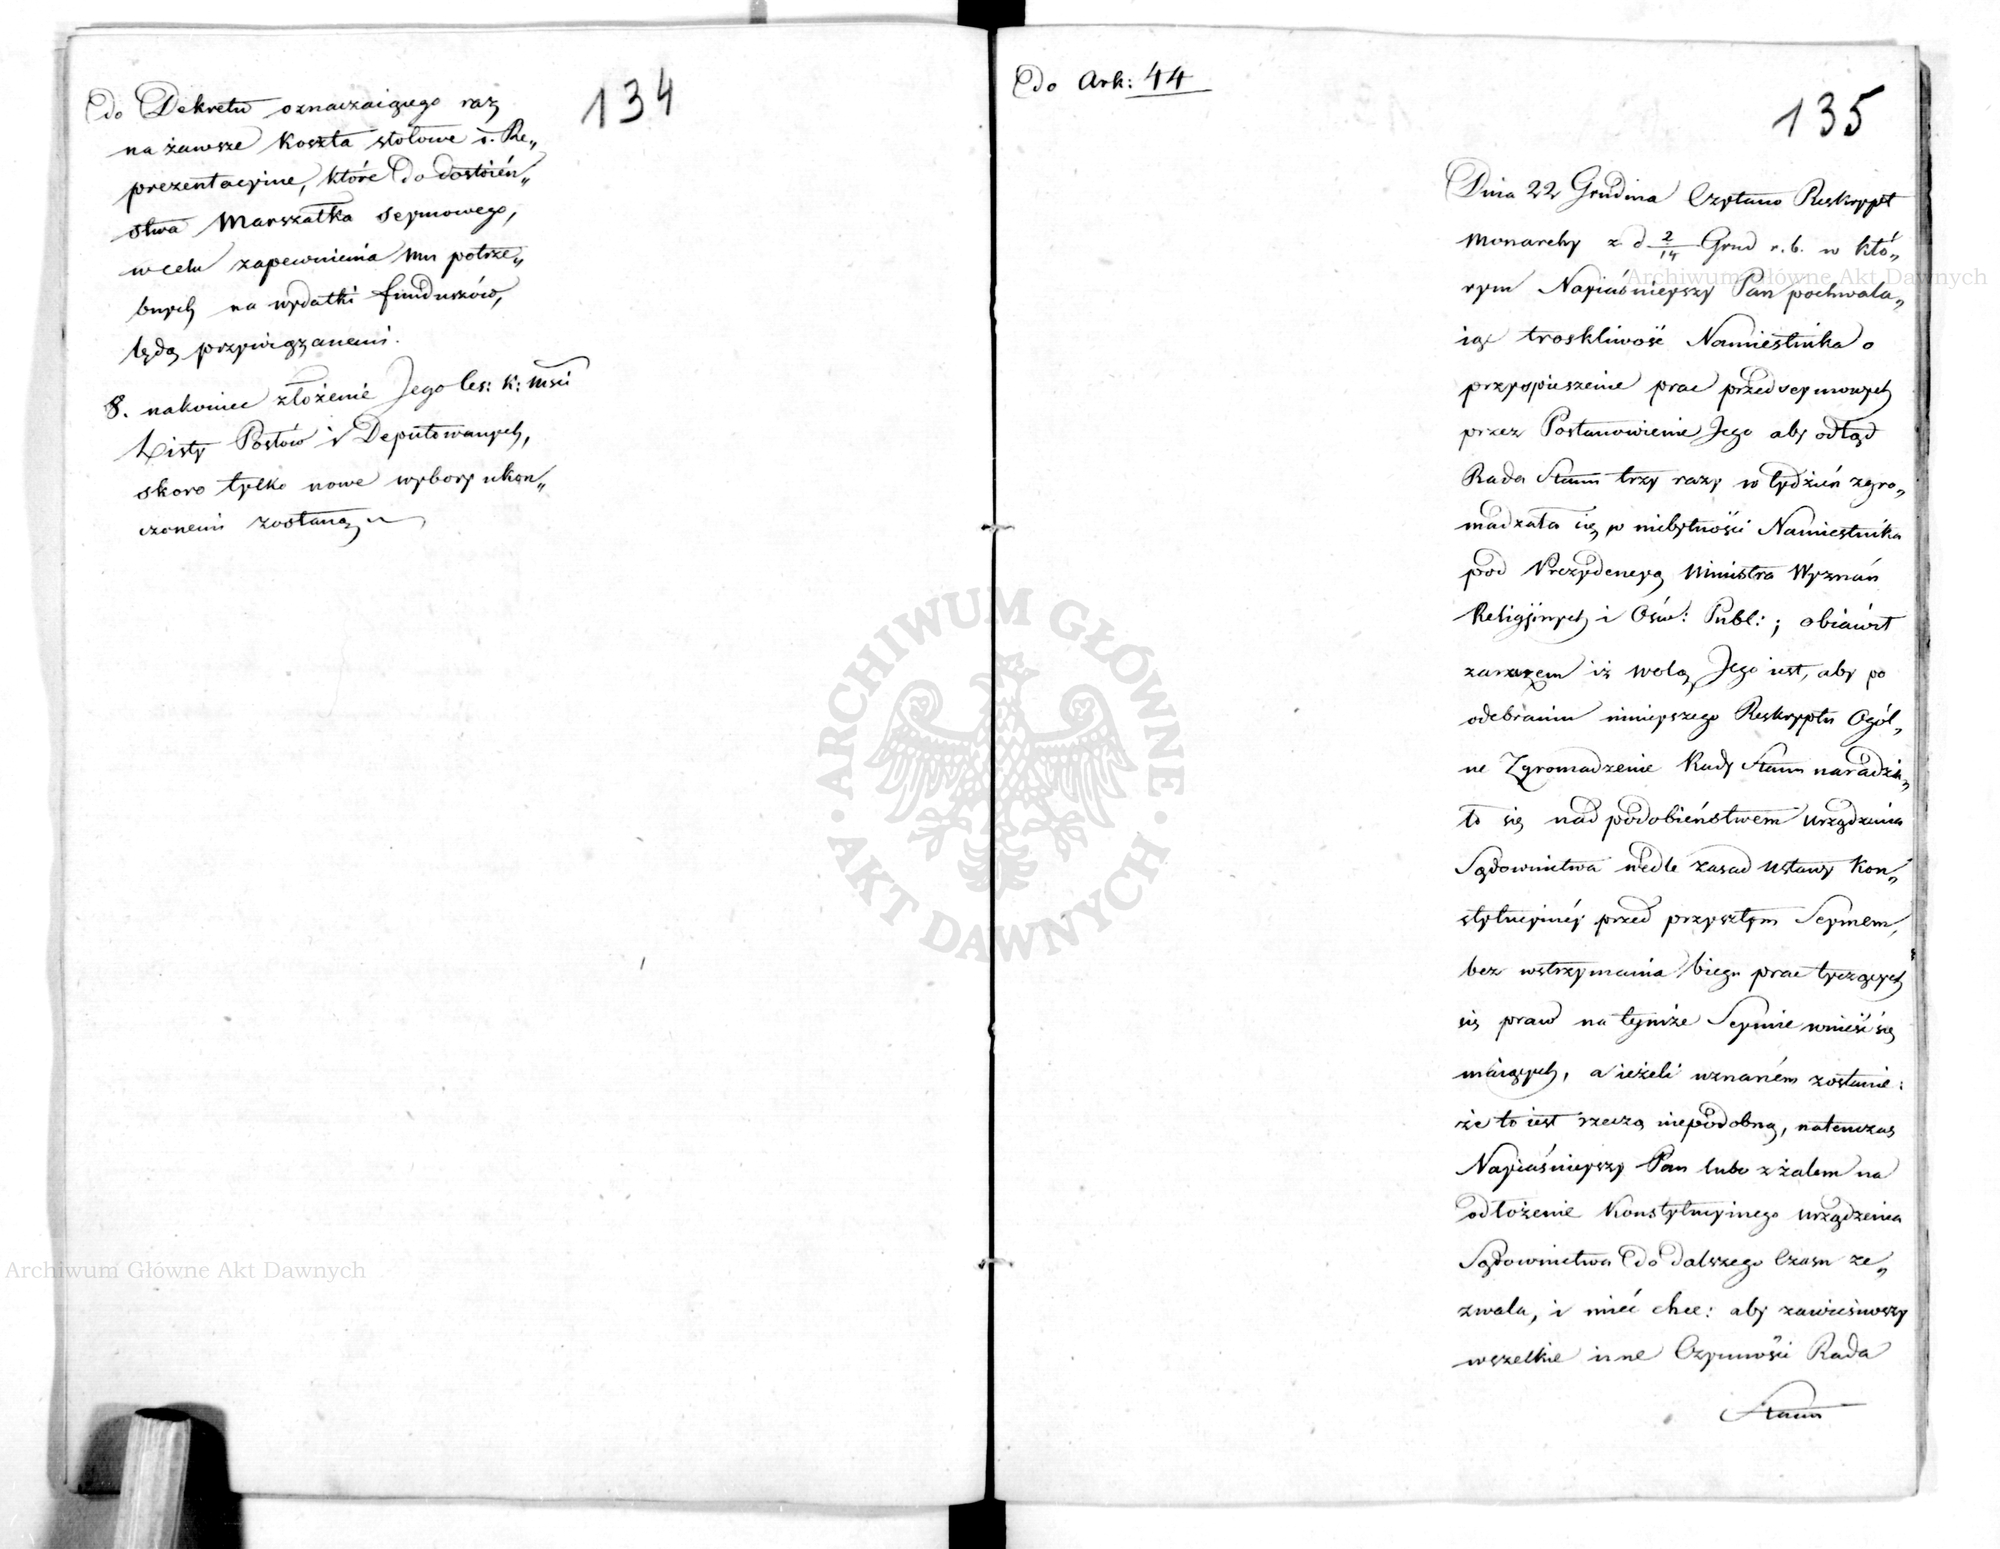 134
do Dekretu oznaczaiącego raz
na zawsze koszta stołowe i Re„
prezentacyine, które do dostoień„
stwa Marszałka Seymowego,
w celu zapewnienia mu potrze„
bnych na wydatki funduszów,
będą przywiązanemi.
8. nakoniec złożenie Jego Ces: K: Mści
Listy Posłów i Deputowanych,
skoro tylko nowe wybory ukoń„
czonemi zostaną
do Ark: 44
135
Dnia 22 Grudnia Czytano Reskrypt
Monarchy z d 2/14 Grud r. b. w któ„
rym Nayiaśnieyszy Pan pochwala„
iąc troskliwość Namiestnika o
przyspieszenie prac przedseymowych
przez Postanowienie Jego aby odtąd
Rada Stanu trzy razy w tydzień zgro„
madzała się w niebytności Namiestnika
pod Prezydencyą Ministra Wyznań
Religiynych i Ośw: Publ: ; obiawił
zarazem iż wolą Jego iest, aby po
odebraniu ninieyszego Reskryptu Ogól„
ne Zgromadzenie Rady Stanu naradzi„
ło się nad podobieństwem urządzenia
Sądownictwa wedle zasad Ustawy Kon„
stytucyinéy przed przyszłym Seymem,
bez wstrzymania biegu prac tyczących
się praw na tymże Seymie wnieść się
maiących, a ieżeli uznaném zostanie:
że to iest rzeczą niepodobną, natenczas
Nayiaśnieyszy Pan lubo z żalem na
odłożenie Konstytucyinego urządzenia
Sądownictwa do dalszego Czasu ze„
zwala, i mieć chce: aby zawiesiwszy
wszelkie inne Czynności Rada
Stanu
Archiwum Główne Akt Dawnych
Archiwum Główne Akt Dawnych
ARCHIWUM GŁÓWNE
AKT DAWNYCH